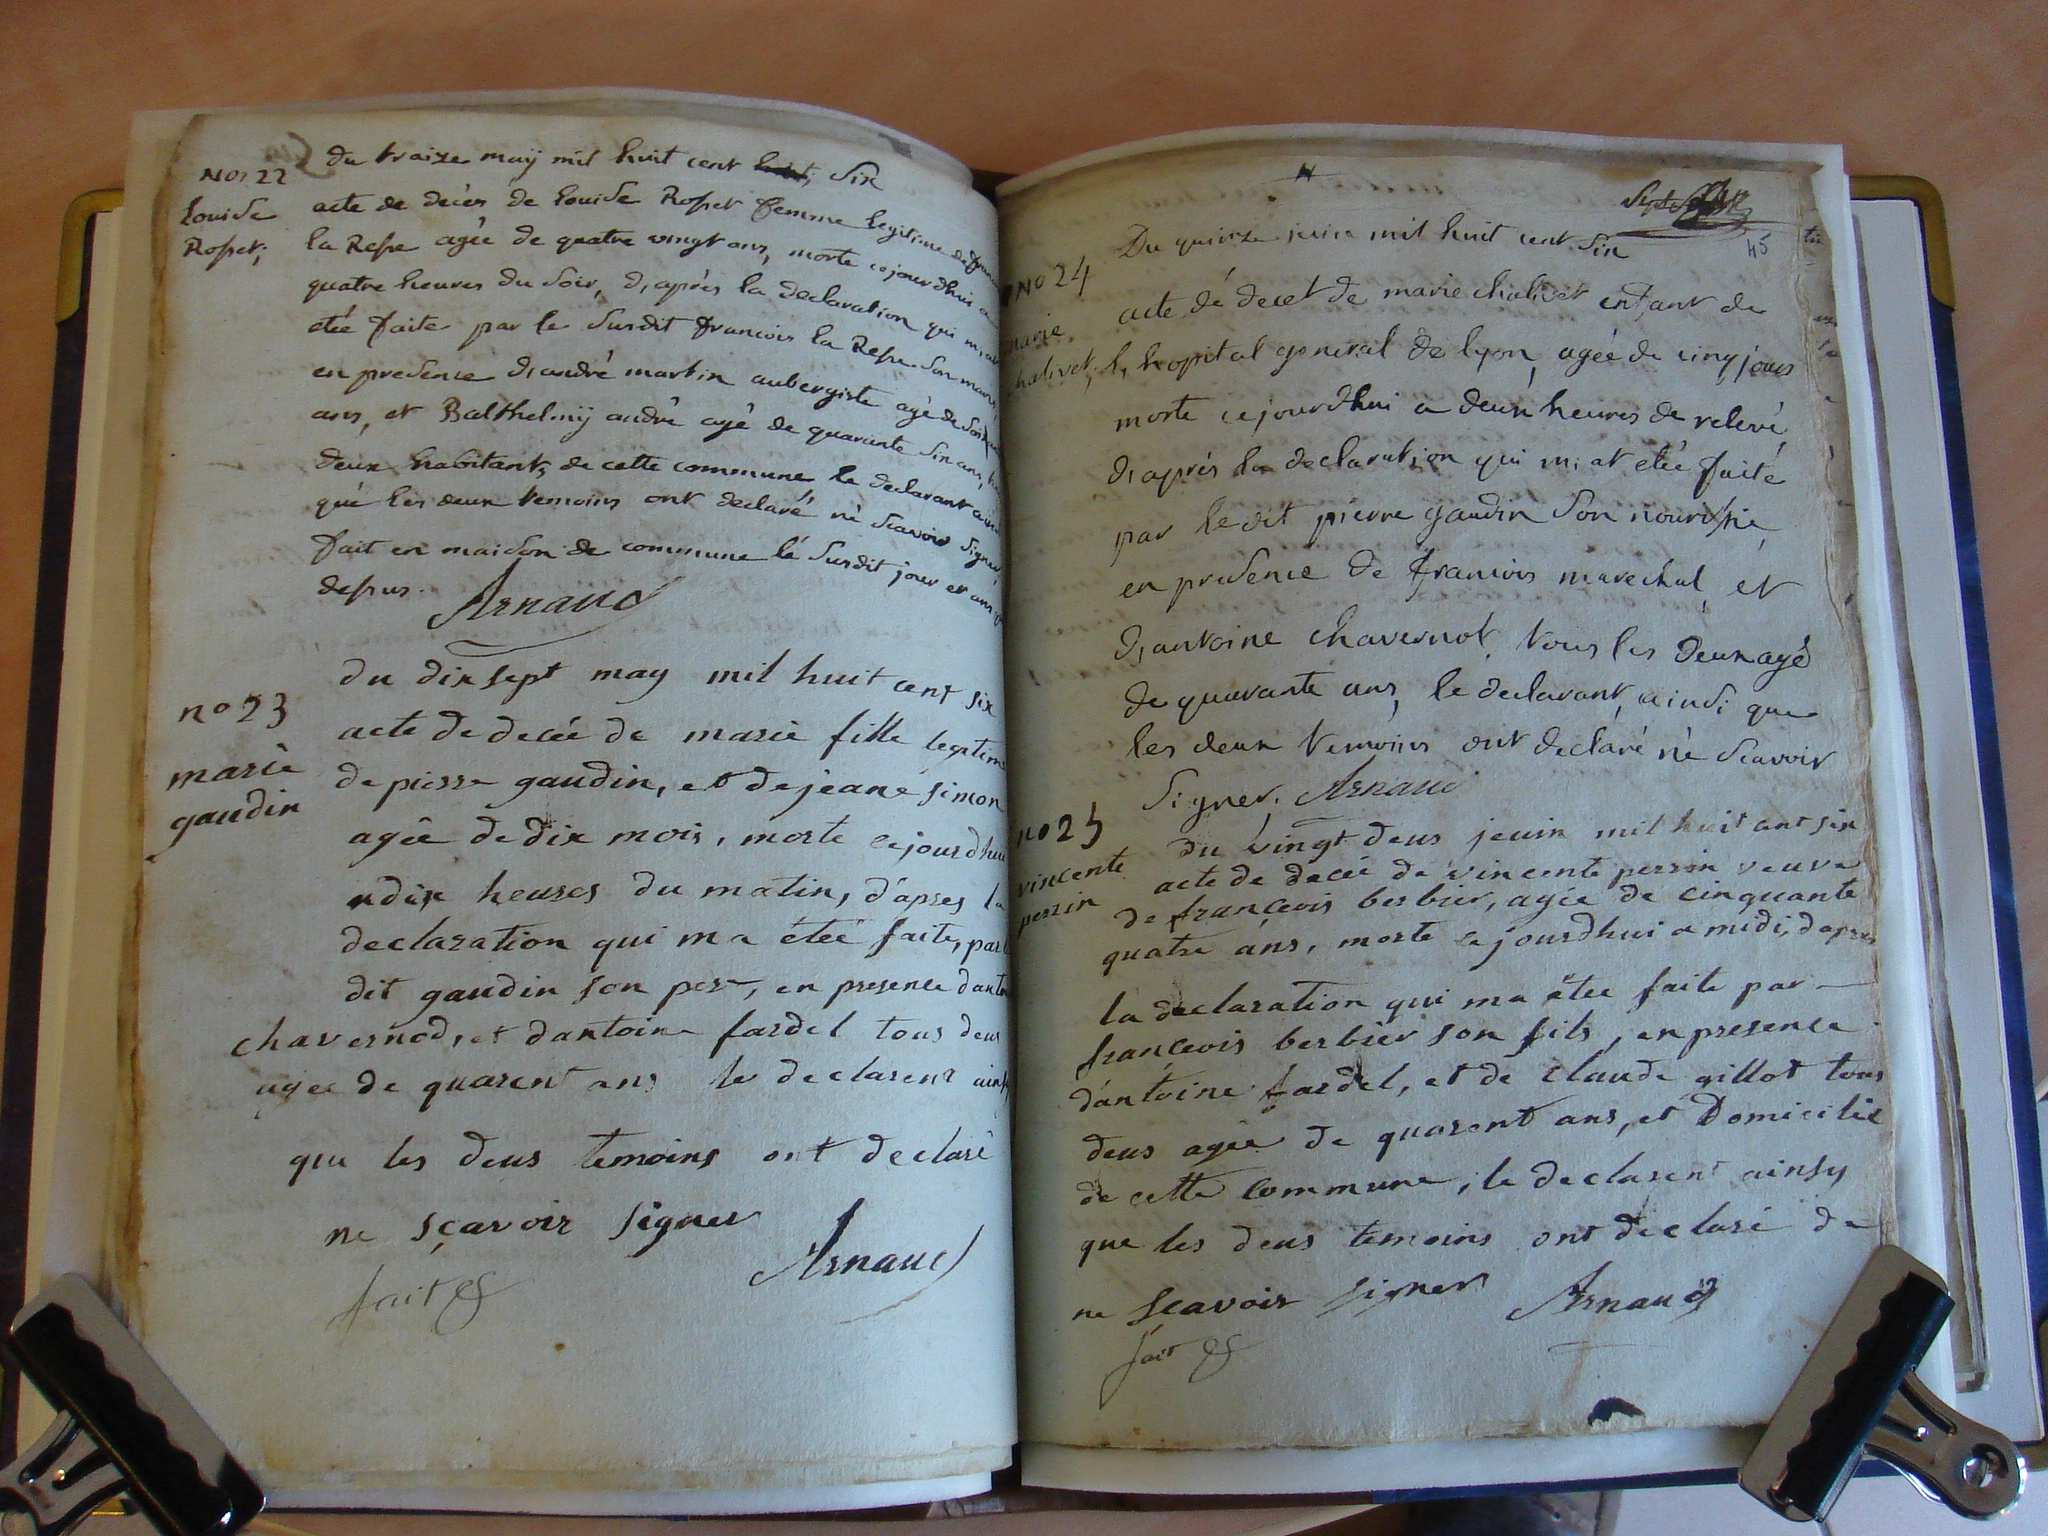 No 22
Louise
Roset,
du traize maÿ mil huit cent huit, Six
acte de decés de Louise Roset femme legitime de
la Resse agée de quatre vingt ans, morte cejourdhui a
quatre heures du Soir, d, aprés la declaration qui m, at
etéé faite par le Susdit francois la Resse Son mari,
en presence d, andré martin aubergiste agé de
ans, et Balthelmÿ andré agé de quarante Six ans,
deux habitants de cette commune le declarant
que les deux temoins ont declaré né Scavoir Signer,
fait en maison de commune lé Susdit jour et an
desus.
Arnaud
no 23
marie
gaudin
du dix sept may mil huit cent six
acte de decée de marie fille legitime
de pierre gaudin, et de jeane simon
agée de dix mois, morte cejourdhui
a dix heures du matin, d'apres la
declaration qui ma étéé faite, par le
dit gaudin son per, en presence
chavernod, et dantoine fardel tous deus
agee de quarent ans le declarent ainsy
que les deus temoins ont declaré
ne sçavoir signer
Arnaud
fait &
45
No 24
marie
chalivet,
Du quinze juin mil huit cent Six
acte dé decet de marie chalivet enfant de
l, hopital general de lyon, agéé de cinq jours
morte cejourdhui a deux heures de relevé,
d, aprés la declaration qui m, at etéé faité
par le dit pierre gaudin Son nourissié,
en presence de francois marechal, et
d, antoine chavernot, tous les deux agé
de quarante ans, le declarant, ainsi que
les deux temoins ont declaré né Scavoir
Signer. Arnaud
no 25
vincente
perrin
du vingt deus jeuin mil huit cent six
acte de decée de vincente perrin veuve
de françeois berbier, agée de cinquante
quatre ans, morte cejourdhui a midi, dapres
la declaration qui ma étee faite par
françeois berbier son fils, en presence
dantoine fardel, et de claude gillot tous
deus agée de quarent ans, et Domicilié
de cette commune, le declarent ainsy
que les deus temoins ont declaré de
ne sçavoir signer Arnaud
fait &